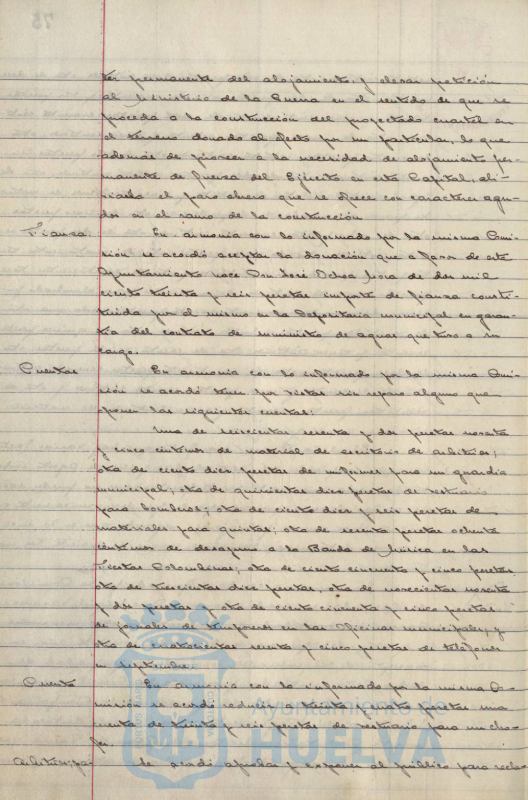 ter permanente del alojamiento, y elevar petición
al Ministerio de la Guerra en el sentido de que se
proceda a la construcción del proyectado cuartel en
el terreno donado al efecto por un particular, lo que
además de proveer a la necesidad de alojamiento per-
manente de fuerza del Ejército en esta Capital, ali-
viaría el paro obrero que se ofrece con caracteres agu-
dos en el ramo de la construcción
Fianza. En armonía con lo informado por la misma Comi-
sión se acordó aceptar la donación que a favor de este
Ayuntamiento hace Don José Ochoa Mora de dos mil
ciento treinta y seis pesetas importe de fianza consti-
tuida por el mismo en la Depositaría municipal en garan-
tía del contrato de suministro de aguas que tuvo a su
cargo.
Cuentas En armonía con lo informado por la misma Comi-
sión se acordó tener por vistas sin reparo alguno que
oponer las siguientes cuentas:
Una de seiscientas sesenta y dos pesetas noventa
y cinco céntimos de material de escritorio de arbitrios;
otra de ciento diez pesetas de uniformes para un guardia
municipal; otra de quinientas diez pesetas de vestuario
para bomberos; otra de ciento diez y seis pesetas de
materiales para quintas; otra de sesenta pesetas ochenta
céntimos de desayuno a la Banda de Música en las
Fiestas Colombinas; otra de ciento cincuenta y cinco pesetas
otra de trescientas diez pesetas, otra de novecientas noventa
y dos pesetas y otra de ciento cincuenta y cinco pesetas
de jornales de temporeros en las Oficinas municipales, y
otra de cuatrocientas setenta y cinco pesetas de teléfonos
en septiembre.
Cuenta En armonía con lo informado por la misma Co-
misión se acordó reducir a treinta y cuatro pesetas una
cuenta de treinta y seis pesetas de vestuario para un cho-
fer.
Arbitrios: pa- Se acordó aprobar y exponer al público para recla-
Ayuntamiento de
HUELVA